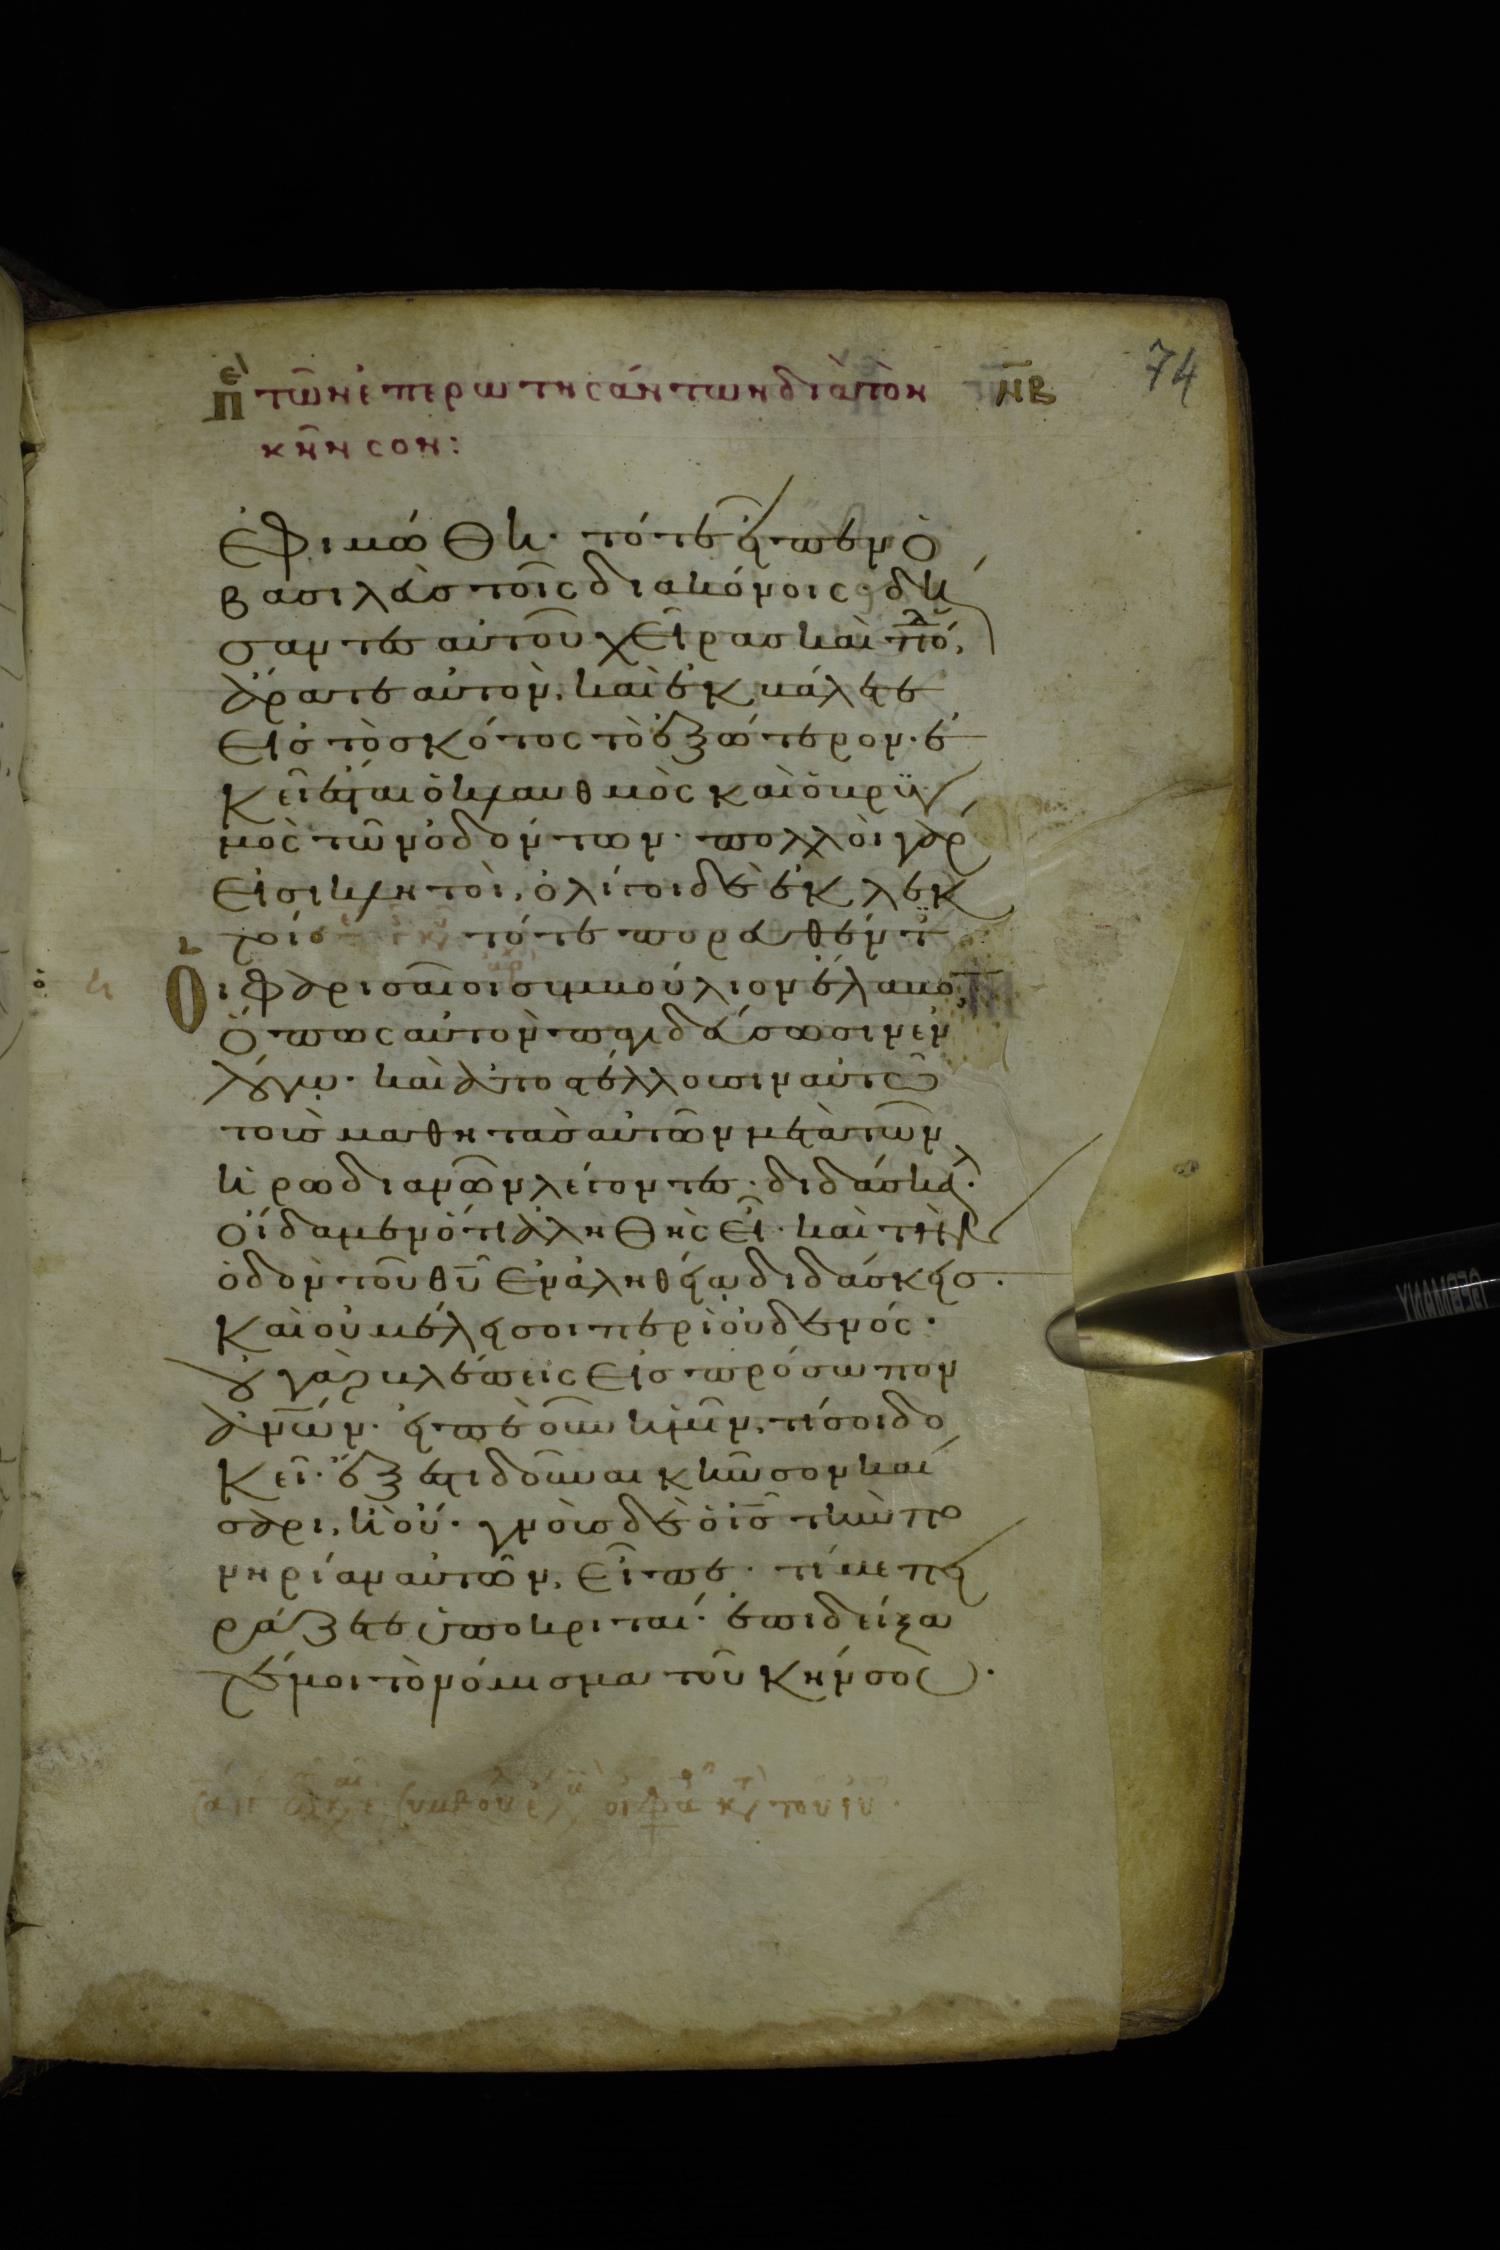 74
πε τῶν ἐπερωτησάντων διὰ τὸν ΝΒ
κῆνσον:
ἐφιμώθη· τότε εἶπεν ὁ
βασιλεὺς τοῖς διακόνοις· δή
σαντες αὐτοῦ χεῖρας καὶ πό,
ἄρατε αὐτὸν, καὶ ἐκβάλετε
εἰς τὸ σκότος τὸ ἐξώτερον· ἐ
κεῖ ἔσται ὁ κλαυθμὸς καὶ ὁ βρυγ
μὸς τῶν ὀδόντων· πολλοὶ γάρ
εἰσι κλητοὶ, ὀλίγοι δὲ ἐκλεκ
τοί· τότε πορευθέντ
Οι φαρισαῖοι συμβούλιον ἔλαβον,
ὅπως αὐτὸν παγιδεύσωσιν ἐν
λόγω· καὶ ἀποστέλλουσιν αὐτῶ
τοὺς μαθητὰς αὐτῶν μετὰ τῶν
ἡρωδιανῶν λέγοντες· διδάσκαλ·
οἴδαμεν ὅτι ἀληθὴς εἶ· καὶ τὴν
ὁδὸν τοῦ θῦ ἐν ἀληθεία διδάσκεις·
καὶ οὐ μέλει σοι περὶ οὐδενός·
οὐ γὰρ βλέπεις εἰς πρόσωπον
ἀνῶν· εἰπὲ οὖν ἡμῖν, τί σοι δο
κεῖ· ἔξεστι δοῦναι κῆνσον καί
σαρι, ἢ οὐ· γνοὺς δὲ ὁ ις τὴν πο
νηρίαν αὐτῶν, εἶπε· τί με πει
ράζετε ὑποκριταί· ἐπιδείξα
τέ μοι τὸ νόμισμα τοῦ κήνσου·
GERMANY